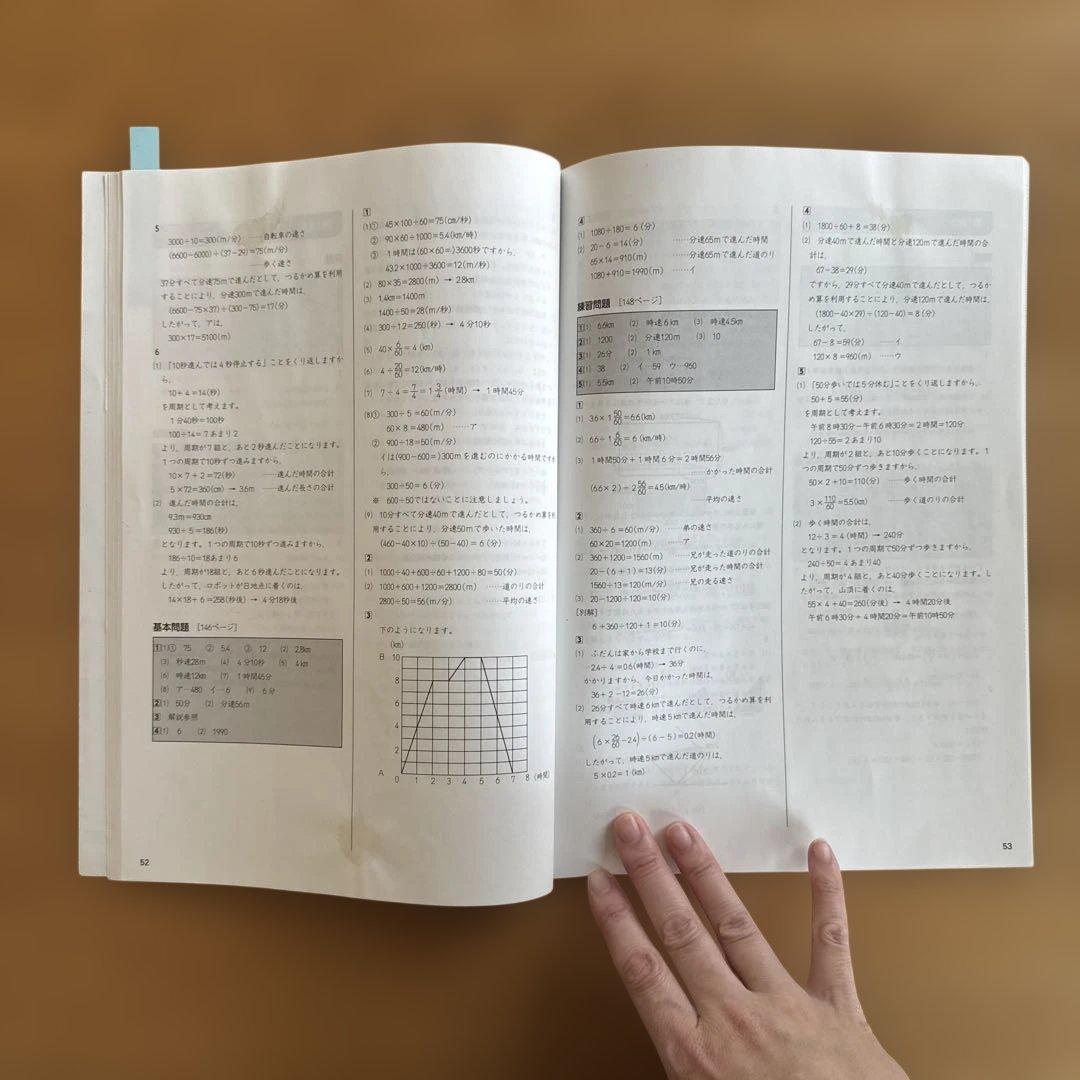 5
3000÷10=300(m/分) ……自転車の速さ
(6600−6000)÷(37−29)=75(m/分)
……歩く速さ
37分すべて分速75mで進んだとして、つるかめ算を利用
することにより、分速300mで進んだ時間は、
(6600−75×37)÷(300−75)=17(分)
したがって、アは、
300×17=5100(m)
6
(1) 「10秒進んでは4秒停止する」ことをくり返しますか
ら、
10+4=14(秒)
を周期として考えます。
1分40秒=100秒
100÷14=7あまり2
より、周期が7組と、あと2秒進んだことになります。
1つの周期で10秒ずつ進みますから、
10×7+2=72(秒) ……進んだ時間の合計
5×72=360(cm) → 3.6m ……進んだ長さの合計
(2) 進んだ時間の合計は、
9.3m=930cm
930÷5=186(秒)
となります。1つの周期で10秒ずつ進みますから、
186÷10=18あまり6
より、周期が18組と、あと6秒進んだことになります。
したがって、ロボットがB地点に着くのは、
14×18+6=258(秒後) → 4分18秒後
基本問題 [146ページ]
1(1)① 75 ② 5.4 ③ 12 (2) 2.8km
(3) 秒速28m (4) 4分10秒 (5) 4km
(6) 時速12km (7) 1時間45分
(8) ア…480 イ…6 (9) 6分
2(1) 50分 (2) 分速56m
3 解説参照
4(1) 6 (2) 1990
52
1
(1)① 45×100÷60=75(cm/秒)
② 90×60÷1000=5.4(km/時)
③ 1時間は(60×60=)3600秒ですから、
43.2×1000÷3600=12(m/秒)
(2) 80×35=2800(m) → 2.8km
(3) 1.4km=1400m
1400÷50=28(m/秒)
(4) 300÷1.2=250(秒) → 4分10秒
(5) 40×6/60=4(km)
(6) 4÷20/60=12(km/時)
(7) 7÷4=7/4=1 3/4(時間) → 1時間45分
(8)① 300÷5=60(m/分)
60×8=480(m) ……ア
② 900÷18=50(m/分)
イは(900−600=)300mを進むのにかかる時間ですか
ら、
300÷50=6(分)
※ 600÷50ではないことに注意しましょう。
(9) 10分すべて分速40mで進んだとして、つるかめ算を利
用することにより、分速50mで歩いた時間は、
(460−40×10)÷(50−40)=6(分)
2
(1) 1000÷40+600÷60+1200÷80=50(分)
(2) 1000+600+1200=2800(m) ……道のりの合計
2800÷50=56(m/分) ……平均の速さ
3
下のようになります。
(km)
B 10
8
6
4
2
A 0 1 2 3 4 5 6 7 8 (時間)
4
(1) 1080÷180=6(分)
(2) 20−6=14(分) ……分速65mで進んだ時間
65×14=910(m) ……分速65mで進んだ道のり
1080+910=1990(m) ……イ
練習問題 [148ページ]
1(1) 6.6km (2) 時速6km (3) 時速4.5km
2(1) 1200 (2) 分速120m (3) 10
3(1) 26分 (2) 1km
4(1) 38 (2) イ…59 ウ…960
5(1) 5.5km (2) 午前10時50分
1
(1) 3.6×1 50/60=6.6(km)
(2) 6.6÷1 6/60=6(km/時)
(3) 1時間50分+1時間6分=2時間56分
……かかった時間の合計
(6.6×2)÷2 56/60=4.5(km/時)
……平均の速さ
2
(1) 360÷6=60(m/分) ……弟の速さ
60×20=1200(m) ……ア
(2) 360+1200=1560(m) ……兄が走った道のりの合計
20−(6+1)=13(分) ……兄が走った時間の合計
1560÷13=120(m/分) ……兄の走る速さ
(3) 20−1200÷120=10(分)
[別解]
6+360÷120+1=10(分)
3
(1) ふだんは家から学校まで行くのに、
2.4÷4=0.6(時間) → 36分
かかりますから、今日かかった時間は、
36+2−12=26(分)
(2) 26分すべて時速6kmで進んだとして、つるかめ算を利
用することにより、時速5kmで進んだ時間は、
(6×26/60−2.4)÷(6−5)=0.2(時間)
したがって、時速5kmで進んだ道のりは、
5×0.2=1(km)
4
(1) 1800÷60+8=38(分)
(2) 分速40mで進んだ時間と分速120mで進んだ時間の合
計は、
67−38=29(分)
ですから、29分すべて分速40mで進んだとして、つるか
め算を利用することにより、分速120mで進んだ時間は、
(1800−40×29)÷(120−40)=8(分)
したがって、
67−8=59(分) ……イ
120×8=960(m) ……ウ
5
(1) 「50分歩いては5分休む」ことをくり返しますから、
50+5=55(分)
を周期として考えます。
午前8時30分−午前6時30分=2時間=120分
120÷55=2あまり10
より、周期が2組と、あと10分歩くことになります。1
つの周期で50分ずつ歩きますから、
50×2+10=110(分) ……歩く時間の合計
3×110/60=5.5(km) ……歩く道のりの合計
(2) 歩く時間の合計は、
12÷3=4(時間) → 240分
となります。1つの周期で50分ずつ歩きますから、
240÷50=4あまり40
より、周期が4組と、あと40分歩くことになります。し
たがって、山頂に着くのは、
55×4+40=260(分後) → 4時間20分後
午前6時30分+4時間20分=午前10時50分
53